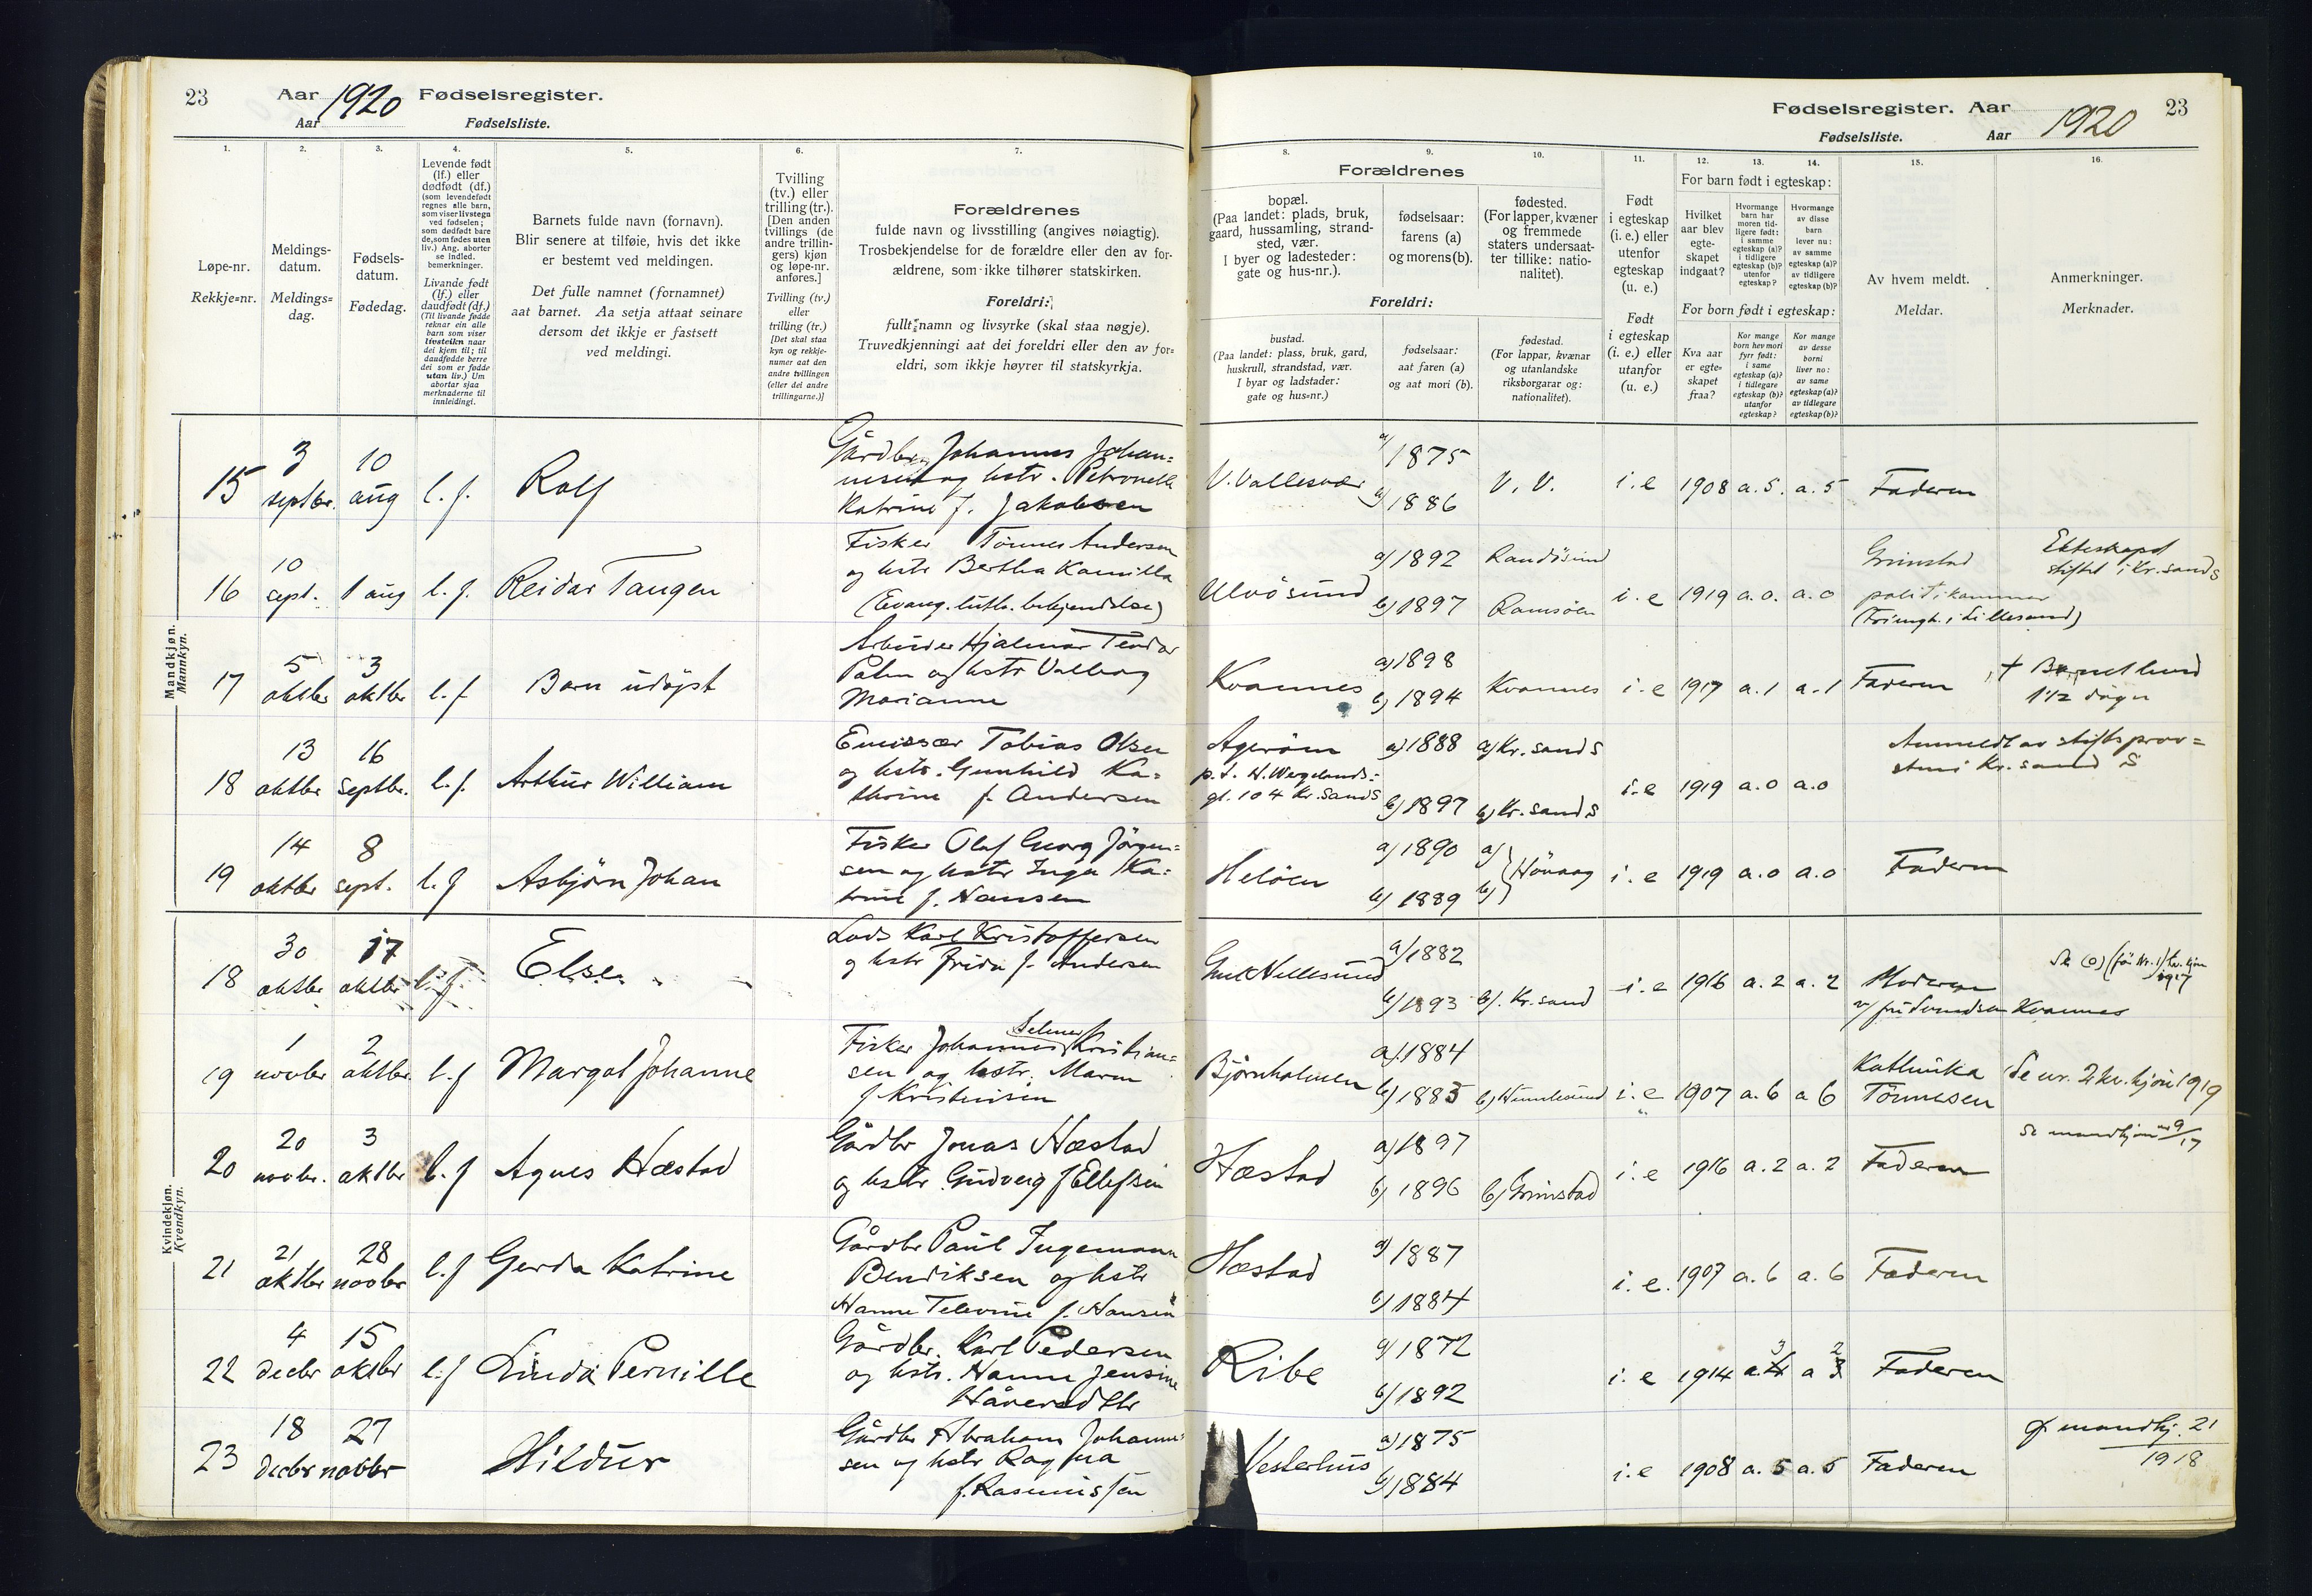 23
Aar 1920 Fødselsregister.
Aar Fødselsliste.
1.
2.
3.
4.
5.
6.
7.
Løpe-nr.
Rekkje=nr.
Meldings-
datum.
Meldings=
dag.
Fødsels-
datum.
Fødedag.
Levende født
(lf.) eller
dødfødt (df.)
(som levendefødt
regnes alle barn,
som viser livstegn
ved fødselen;
som dødfødt bare
de, som fødes uten
liv.) Ang. aborter
se indled.
bemerkninger.
Livande født
(lf.) eller
daudfødt (df.)
(Til livande fødde
reknar ein alle
barn som viser
livsteikn naar
dei kjem til; til
daudfødde berre
dei som er fødde
utan liv.) Um
abortar sjaa
merknaderne til
innleidingi.
Barnets fulde navn (fornavn).
Blir senere at tilføie, hvis det ikke
er bestemt ved meldingen.
Det fulle namnet (fornamnet)
aat barnet. Aa setja attaat seinare
dersom det ikkje er fastsett
ved meldingi.
Tvilling
(tv.) eller
trilling (tr.).
[Den anden
tvillings (de
andre trillin-
gers) kjøn
og løpe-nr.
anføres.]
Tvilling (tv.)
eller
trilling (tr.)
[Det skal staa
kyn og rekkje-
numer aat den
andre tvillingen
(eller dei andre
trillingarne.)]
Forældrenes
fulde navn og livsstilling (angives nøiagtig).
Trosbekjendelse for de forældre eller den av for-
ældrene, som ikke tilhører statskirken.
Foreldri:
fullt namn og livsyrke (skal staa nøgje).
Truvedkjenningi aat dei foreldri eller den av for=
eldri, som ikkje høyrer til statskyrkja.
Mandkjøn.
Mannkyn.
15
3
septbr.
10
aug
l. f.
Rolf
Gårdbr. Johannes Johan=
nesen og hstr. Petronelle
Katrine f. Jakobsen
16
10
sept.
1 aug
l. f.
Reidar Tangen
Fisker Tønnes Andersen
og hstr Bertha Kamilla
(Evang. luth. bekjendelse)
17
5
oktbr
3
oktbr
l. f
Barn udøpt
Arbeider Hjalmar Teodor
Palm og hstr Valborg
Marianne
18
13
oktbr
16
septbr.
l. f.
Arthur William
Emissær Tobias Olsen
og hstr. Gunhild Ka=
thrine f. Andersen
19
14
oktbr
8
sept.
l. f
Asbjørn Johan
Fisker Olaf Georg Jörgen=
sen og hstr Inga Ka=
trine f. Hansen
Kvindekjøn.
Kvendkyn.
18
30
oktbr
17
oktbr
l. f.
Else.
Lods Karl Kristoffersen
og hstr Frida f. Andersen
19
1
novbr
2
oktbr.
l. f
Margot Johanne
Selmer
Fisker Johannes Kristian=
sen og hstr. Maren
f Kristensen
20
20
novbr.
3
oktbr
l. f
Agnes Hæstad
Gårdbr Jonas Hæstad
og hstr Gudveig f Ellefsen
21
21
oktbr
28
novbr
l. f
Gerda Katrine
Gårdbr Paul Ingemann
Bendiksen og hstr
Hanne Televine f. Hansen
22
4
decbr
15
oktbr
l. f
Linda Pernille
Gårdbr. Karl Pedersen
og hstr. Hanne Jensine
23
18
decbr
27
novbr
Hildur
Gårdbr Abraham Johanne=
sen og hstr Ragna
f. Rasmussen
Fødselsregister. Aar 1920
23
Fødselsliste. Aar
8.
9.
10.
11.
12.
13.
14.
15.
16.
Forældrenes
bopæl.
(Paa landet: plads, bruk,
gaard, hussamling, strand-
sted, vær.
I byer og ladesteder:
gate og hus-nr.).
fødselsaar:
farens (a)
og morens (b).
fødested.
(For lapper, kvæner
og fremmede
staters undersaat-
ter tillike: natio-
nalitet).
Foreldri:
bustad.
(Paa landet: plass, bruk, gard,
huskrull, strandstad, vær.
I byar og ladstader:
gate og hus=nr.)
fødselsaar:
aat faren (a)
og aat mori (b).
fødestad.
(For lappar, kvænar
og utanlandske
riksborgarar og:
nationalitet).
Født
i egteskap
(i. e.) eller
utenfor
egteskap
(u. e.)
Født
i egteskap
(i. e.) eller
utanfor
(u. e.)
For barn født i egteskap:
Hvilket
aar blev
egte-
skapet
indgaat?
Hvormange
barn har
moren tid-
ligere født:
i samme
egteskap (a)?
i tidligere
egteskap (b)?
utenfor
egteskap?
Hvormange
av disse
barn
lever nu:
av samme
egteskap (a)?
av tidligere
egteskap (b)?
For born født i egteskap:
Kva aar
er egte-
skapet
fraa?
Kor mange
born hev mori
fyrr født:
i same
egteskap (a)?
i tidlegare
egteskap (b)?
utanfor
egteskap?
Kor mange
av desse
borni
liver no:
av same
egteskap (a)?
av tidlegare
egteskap (b)?
Av hvem meldt.
Meldar.
Anmerkninger.
Merknader.
V. Vallesvær
a) 1875
b) 1886
V. V.
i. e
1908
a. 5.
a. 5
Faderen
Ulvøsund
a) 1892
b) 1897
Randøsund
Ramsøen
i. e
1919
a. 0.
a. 0
Grimstad
politikammer
Ekteskapet
stiftet i Kr.sand S
Kvannes
a) 1898
b) 1894
Kvannes
i. e
1917
a. 1
a. 1
Faderen
† Barnet leved
1 1/2 døgn
Agerøen
p.t. H. Wergelands=
gt. 104 Kr.sand S
a) 1888
b) 1897
a) Kr. sand S
b) Kr. sand S
i. e
1919
a. 0
a. 0
Anmeldt av stiftsprov=
sten i Kr. sand S
Heløen
a) 1890
b) 1889
a)
b) Høvaag
i. e
1919
a. 0
a. 0
Faderen
a) 1882
b) 1893
b). Kr. sand
i. e
1916
a. 2
a. 2
Moderen
Kvannes
1917
Bjørnholmen
a) 1884
b) 1885
i. e
1907
a. 6
a 6
Kathinka
Tønnesen
Se nr. 2 kv. kjøn 1919
Hæstad
a) 1897
b) 1896
b) Grimstad
i. e
1916
a. 2
a. 2
Faderen
Se mandkjøn nr 9/17
Hæstad
a) 1887
b) 1884
i. e.
1907
a. 6
a. 6
Faderen
Ribe
a) 1872
b) 1892
i. e
1914
a. 3
a 2
Faderen
Vesterhus
a) 1875
b) 1884
i. e
1908
a. 5
a. 5
Faderen
mandkj. 21
1918